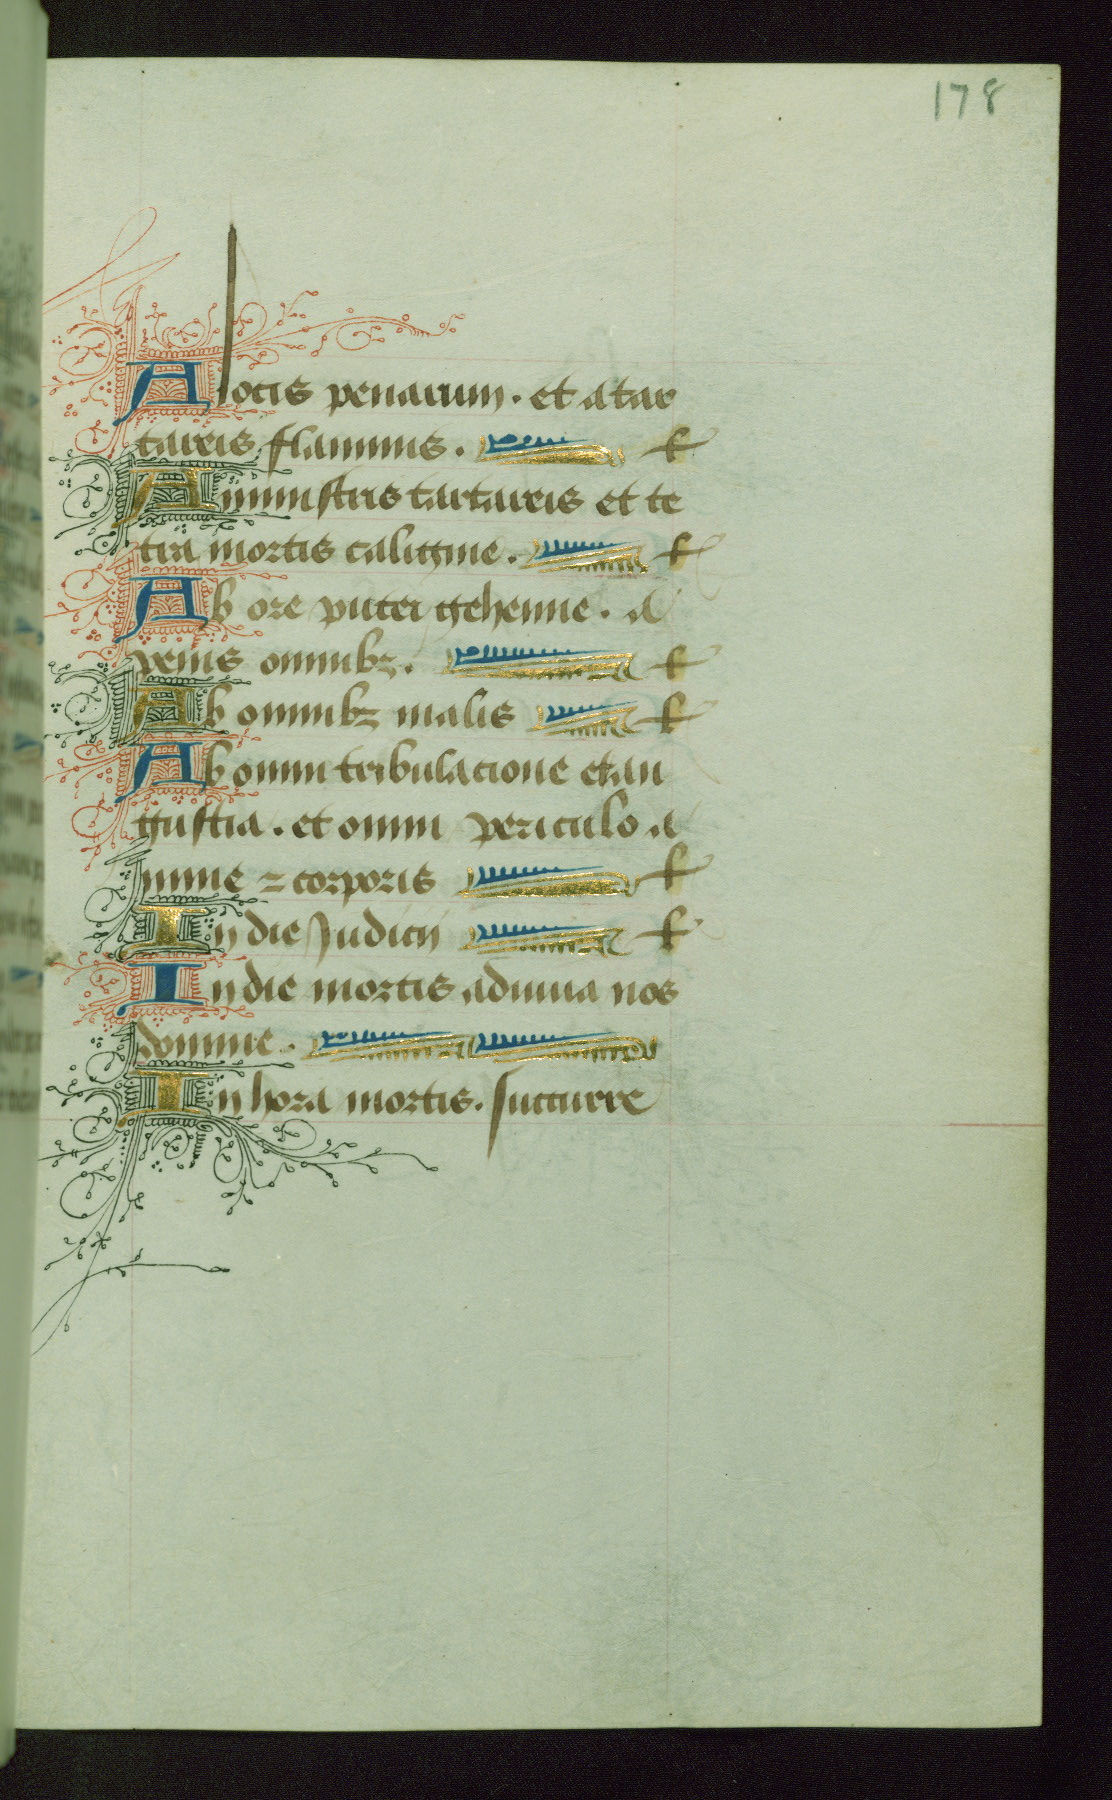 178
A locis penarum . et a tar
tareis flammis . k
A ministris tartareis et te
tra mortis caligine . k
Ab ore putei gehenne . a
penis omnibz . k
Ab omnibz malis k
Ab omni tribulacione et an
gustia . et omni periculo a
nime ⁊ corporis k
In die Judicij k
In die mortis adiuua nos
domine .
In hora mortis . succurre